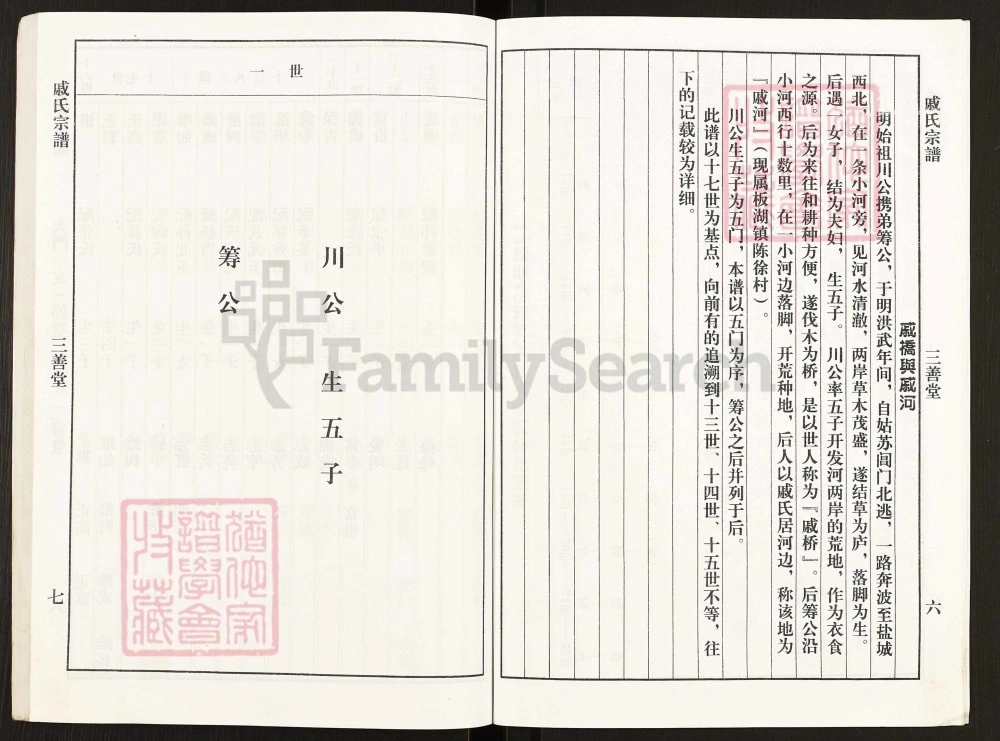 戚氏宗譜
三善堂
六
戚橋與戚河
明始祖川公携弟筹公，于明洪武年间，自姑苏阊门北逃，一路奔波至盐城
西北，在一条小河旁，见河水清澈，两岸草木茂盛，遂结草为庐，落脚为生。
后遇一女子，结为夫妇，生五子。川公率五子开发河两岸的荒地，作为衣食
之源。后为来往和耕种方便，遂伐木为桥，是以世人称为『戚桥』。后筹公沿
小河西行十数里，在一小河边落脚，开荒种地，后人以戚氏居河边，称该地为
『戚河』（现属板湖镇陈徐村）。
川公生五子为五门，本谱以五门为序，筹公之后并列于后。
此谱以十七世为基点，向前有的追溯到十三世、十四世、十五世不等，往
下的记载较为详细。
世一
川公 生五子
筹公
戚氏宗譜
三善堂
七
譜學會
FamilySearch